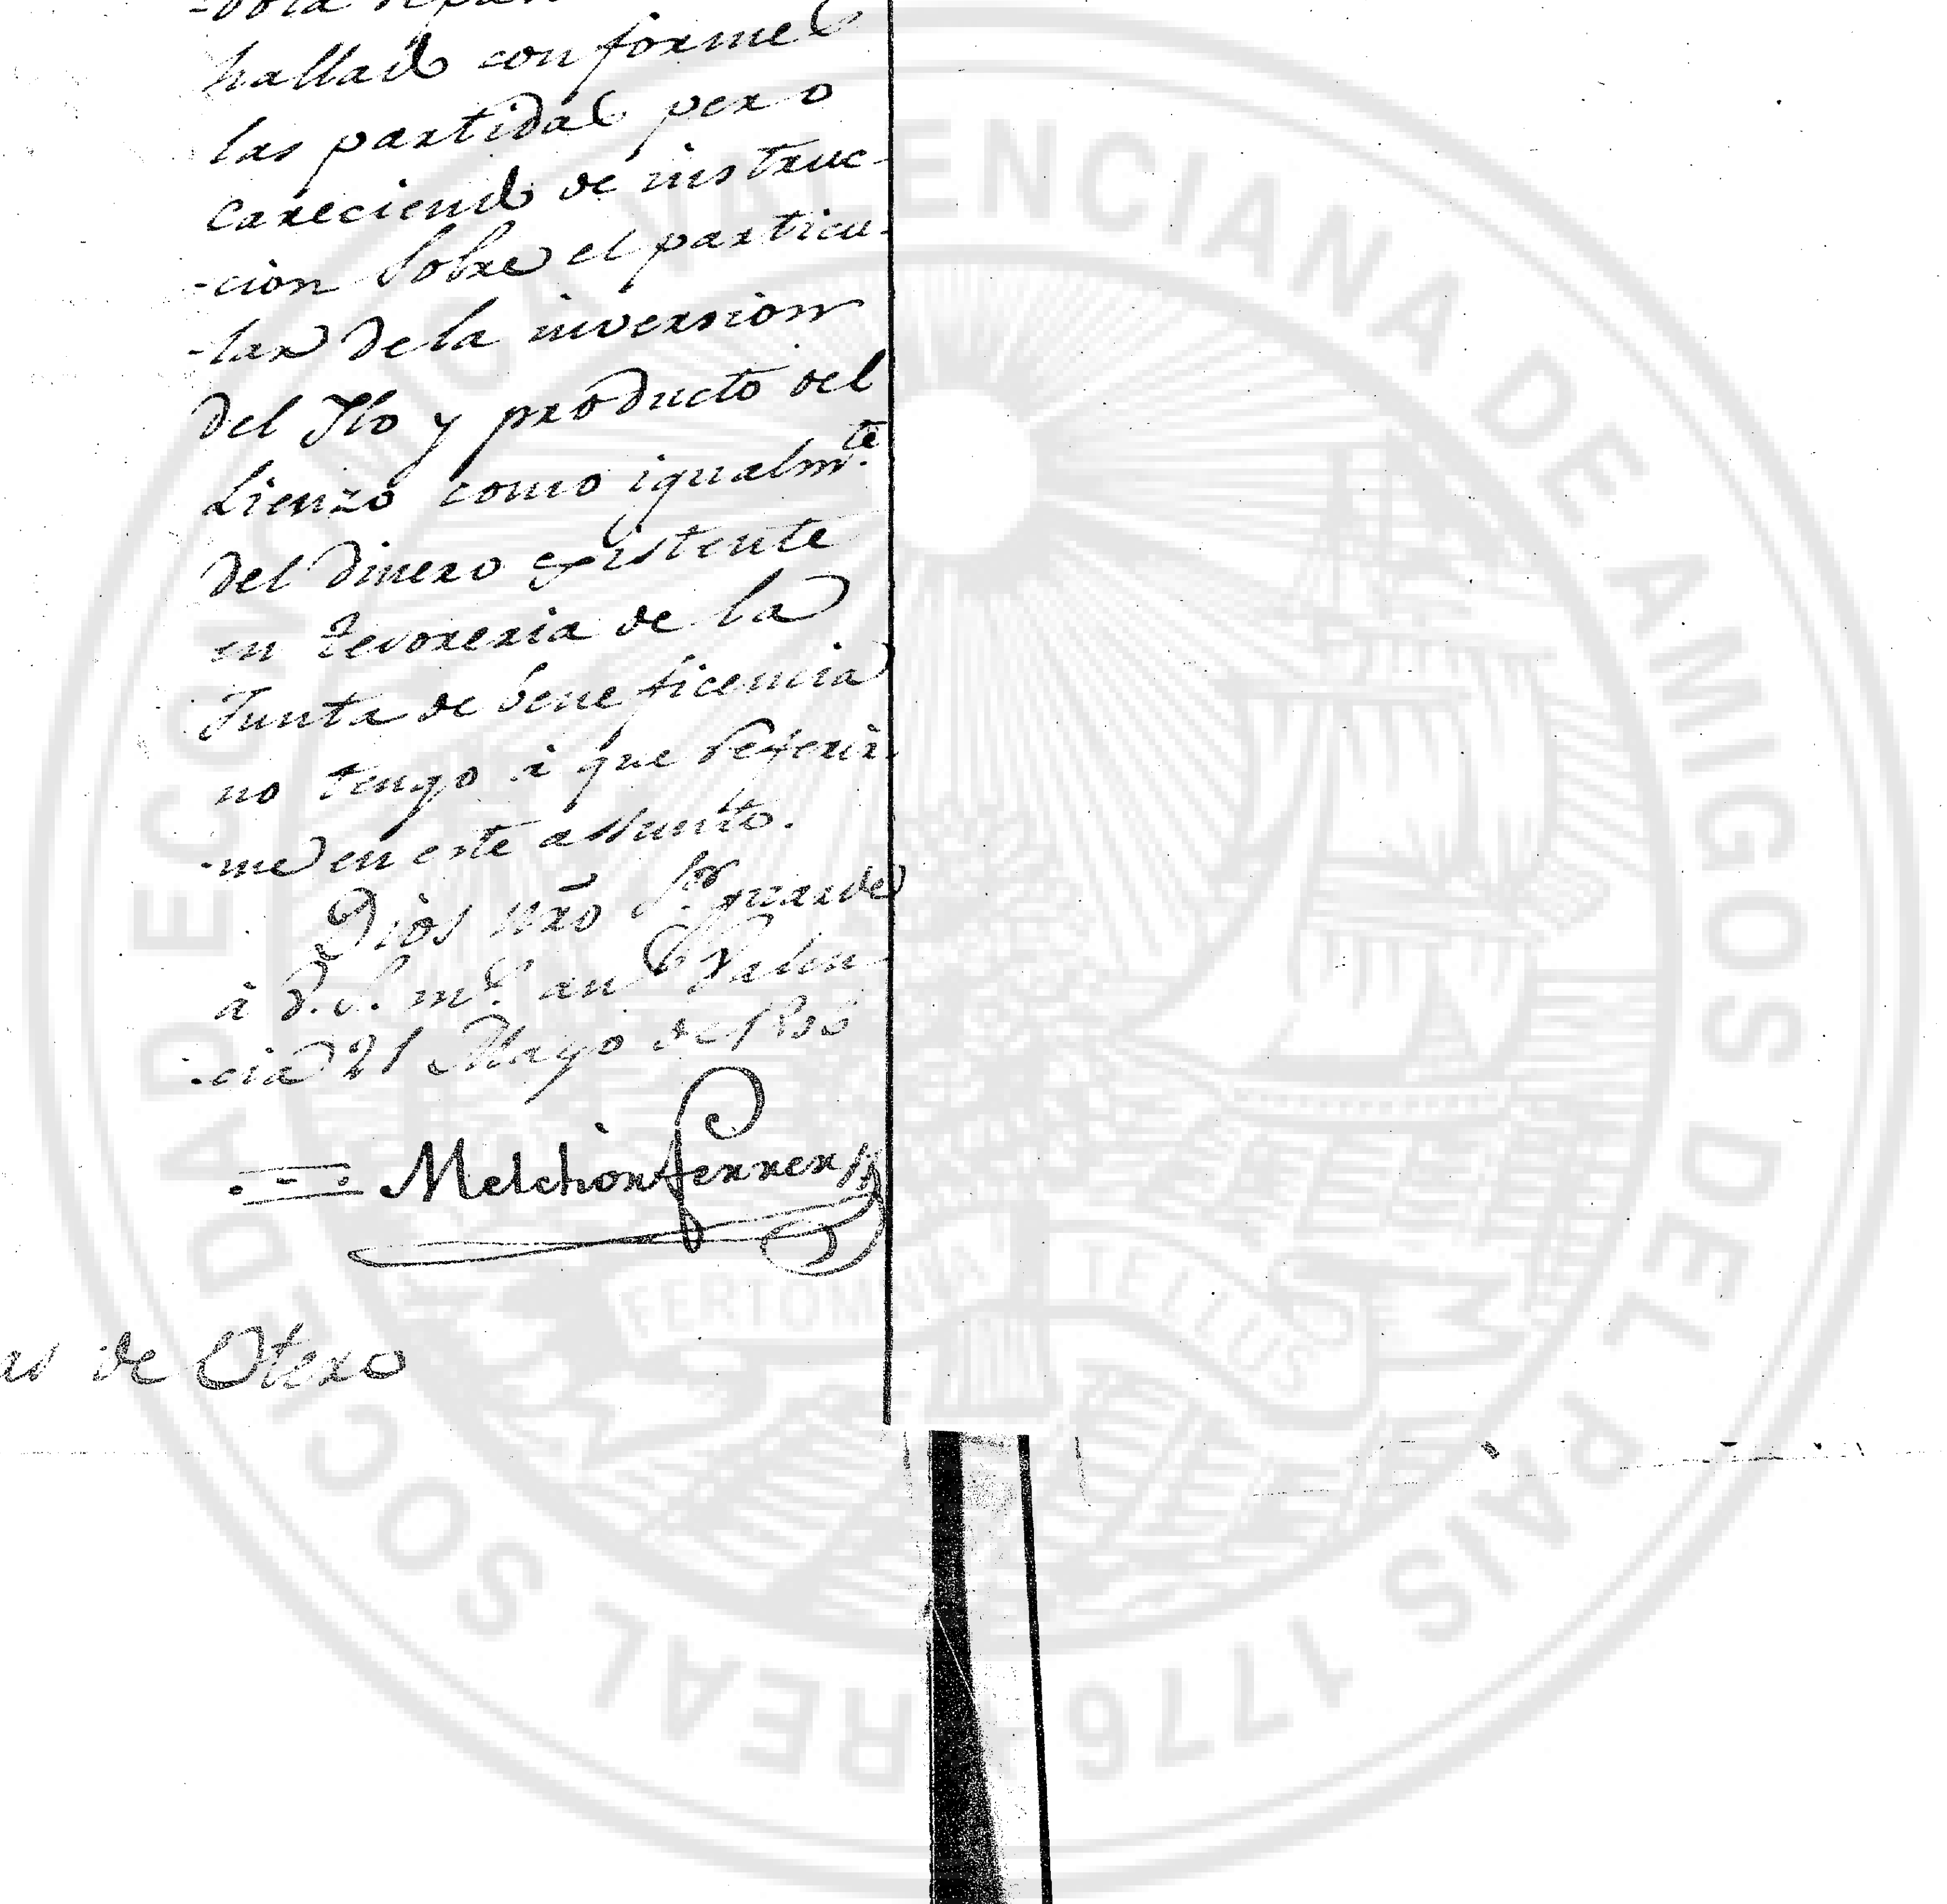 hallado conforme
las partidas pero
careciendo de instruc-
-cion sobre el particu-
-lar de la inversion
del Ilo y producto del
Lienzo como igualm.te
del dinero existente
en tesoreria de la
Junta de beneficencia
no tengo à que referir-
-me en este assunto.
Dios nro S.or guarde
à V.S. m.s an.s Valen
-cia 21 Mayo de 1806
Melchor Ferrer
de Otero
REAL SOCIEDAD ECONOMICA VALENCIANA DE AMIGOS DEL PAIS 1776